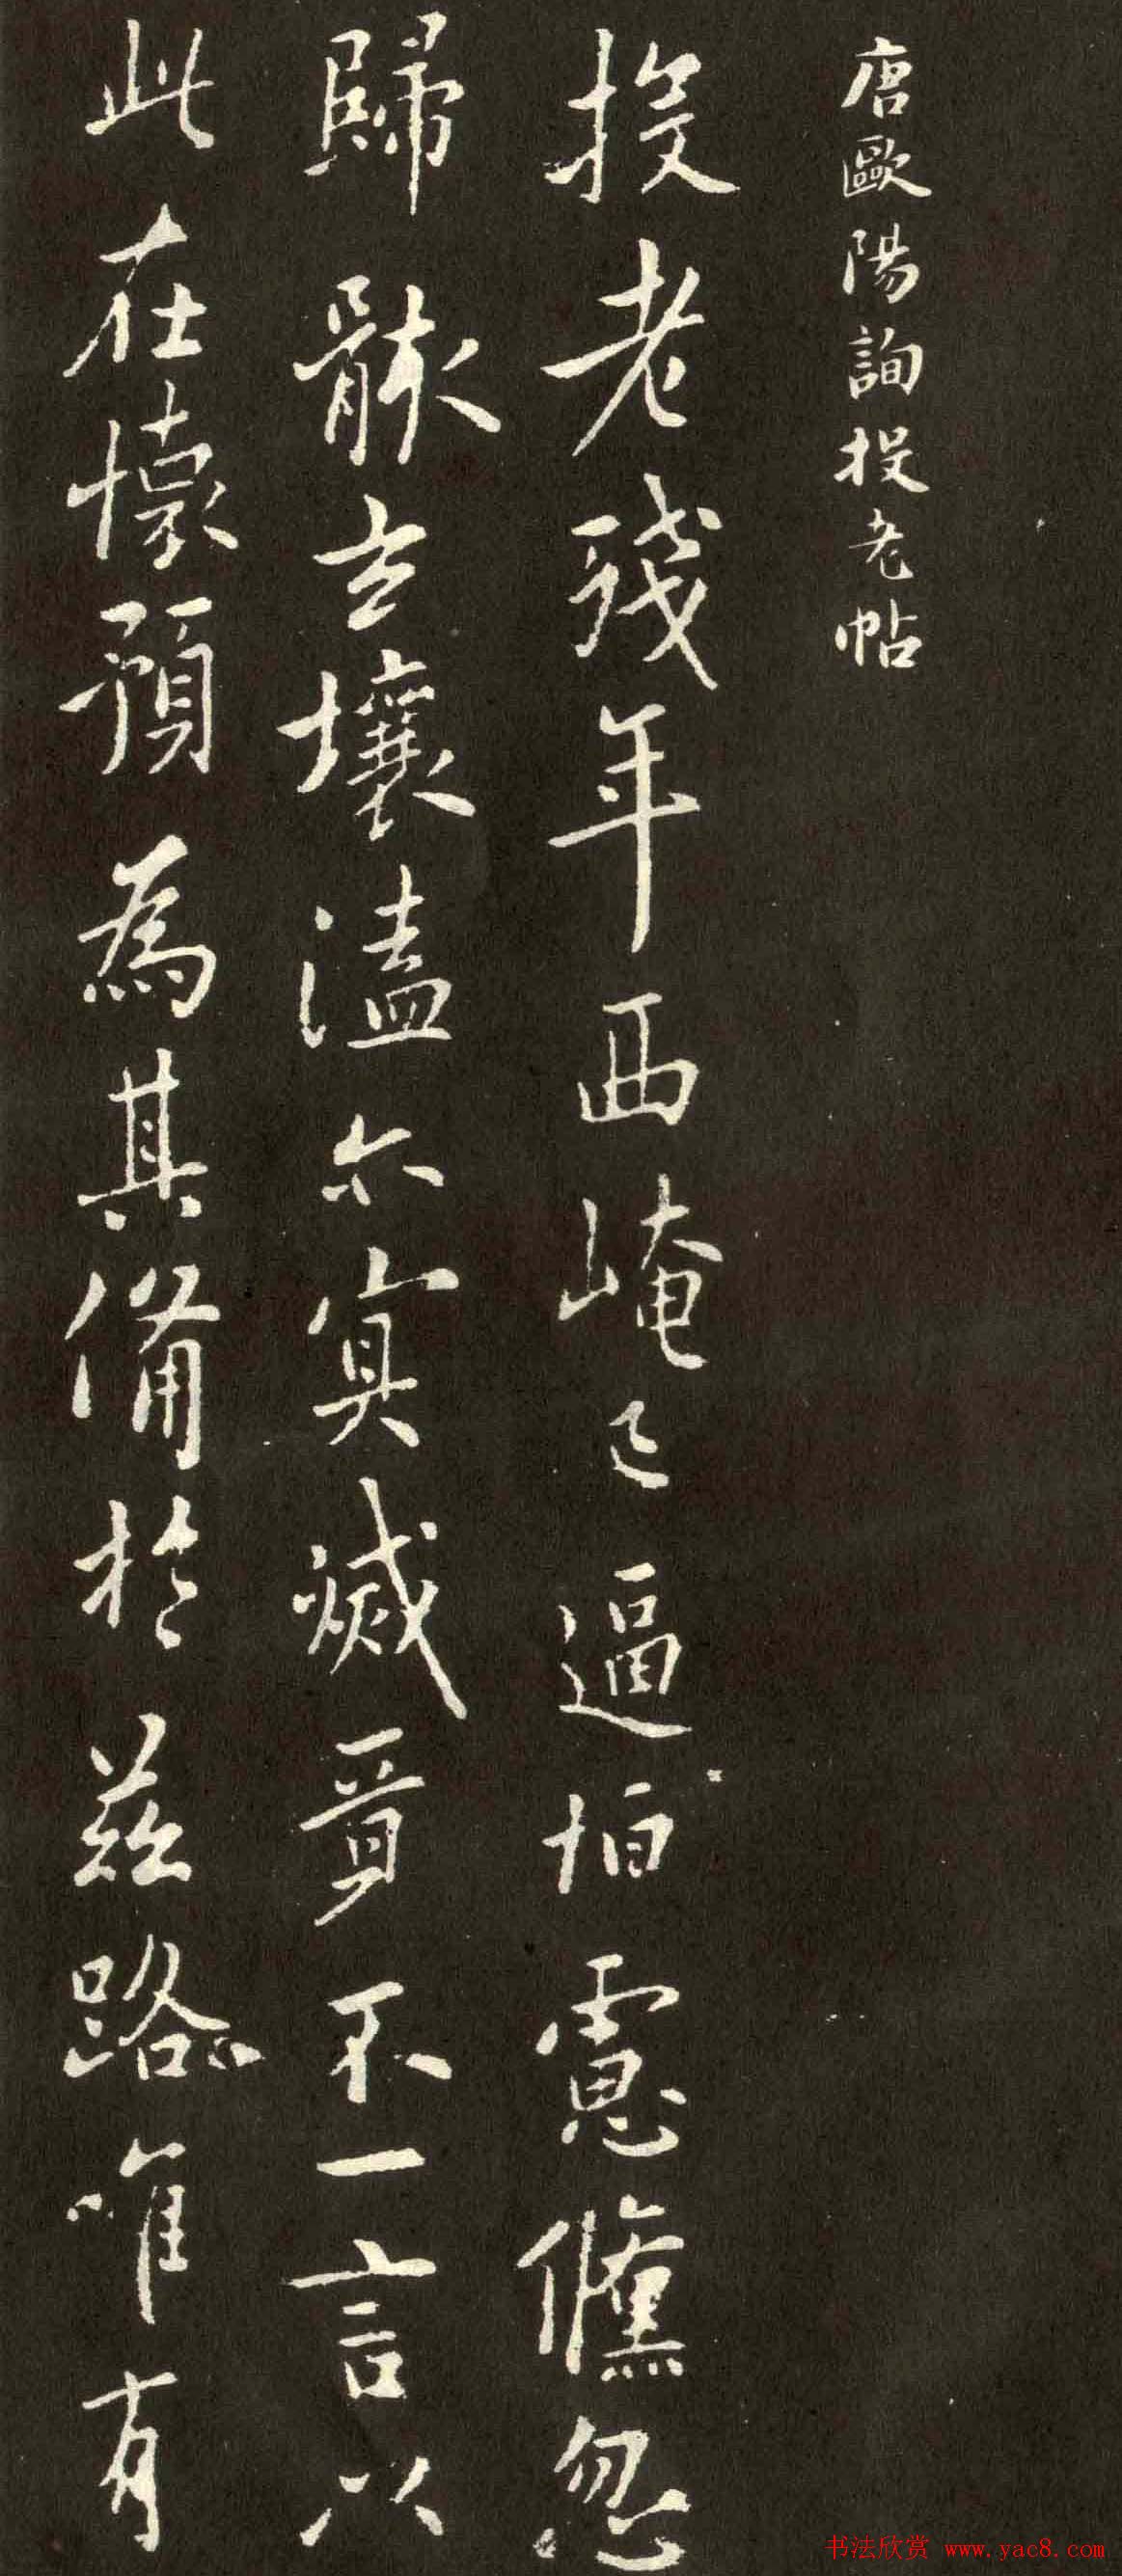 唐歐陽詢投老帖
投老殘年西崦已逼怕慮儵忽
歸骸玄壤溘尒冥滅哥不一言以
此在懷預為其備於茲路唯有
书法欣赏 www.yac8.com